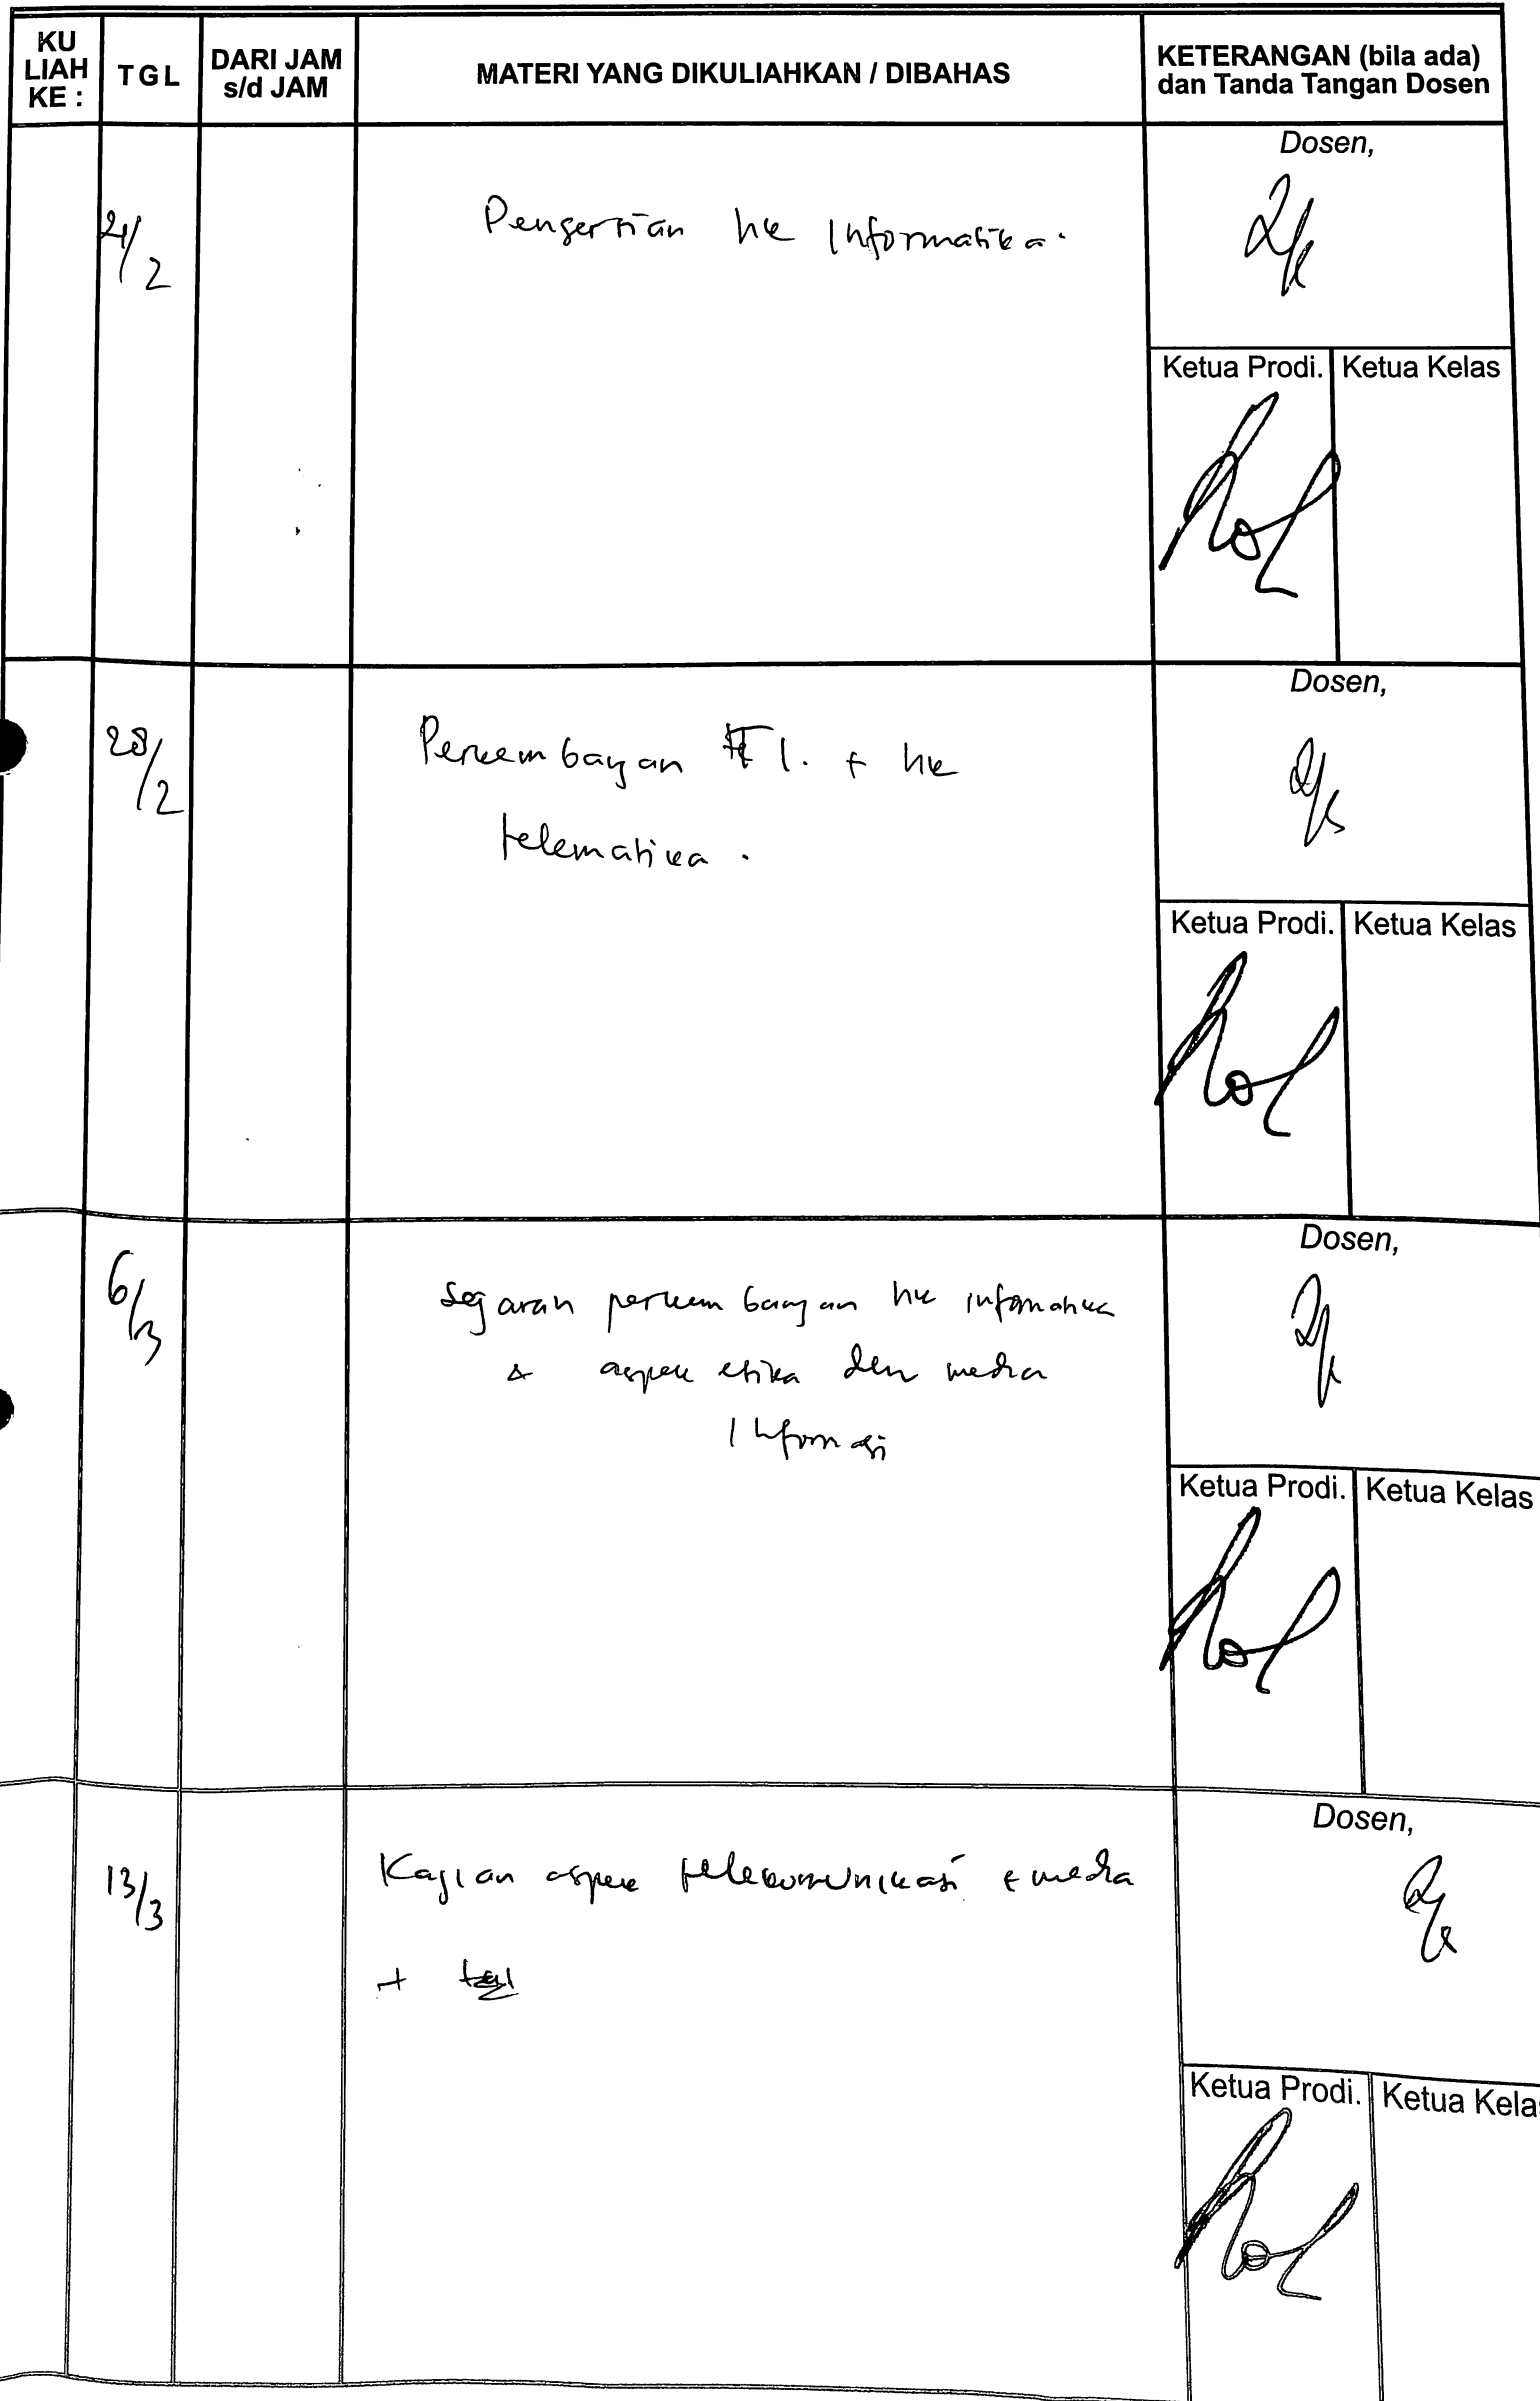 KU
LIAH
KE :
TGL
DARI JAM
s/d JAM
MATERI YANG DIKULIAHKAN / DIBAHAS
KETERANGAN (bila ada)
dan Tanda Tangan Dosen
21/2
Pengertian hk Informatika.
Dosen,
Ketua Prodi. Ketua Kelas
28/2
Perkembangan TI. + hk
telematika.
Dosen,
Ketua Prodi. Ketua Kelas
6/3
Sejarah perkembangan hk informatika
& aspek etika dlm media
Informasi
Dosen,
Ketua Prodi. Ketua Kelas
13/3
Kajian aspek telekomunikasi & media
+
Dosen,
Ketua Prodi. Ketua Kelas